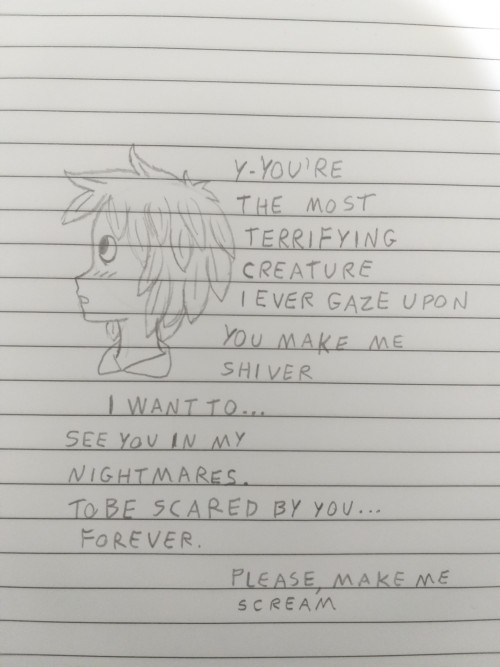 Y-YOU'RE
THE MOST
TERRIFYING
CREATURE
I EVER GAZE UPON
YOU MAKE ME
SHIVER
I WANT TO...
SEE YOU IN MY
NIGHTMARES.
TO BE SCARED BY YOU...
FOREVER.
PLEASE, MAKE ME
SCREAM